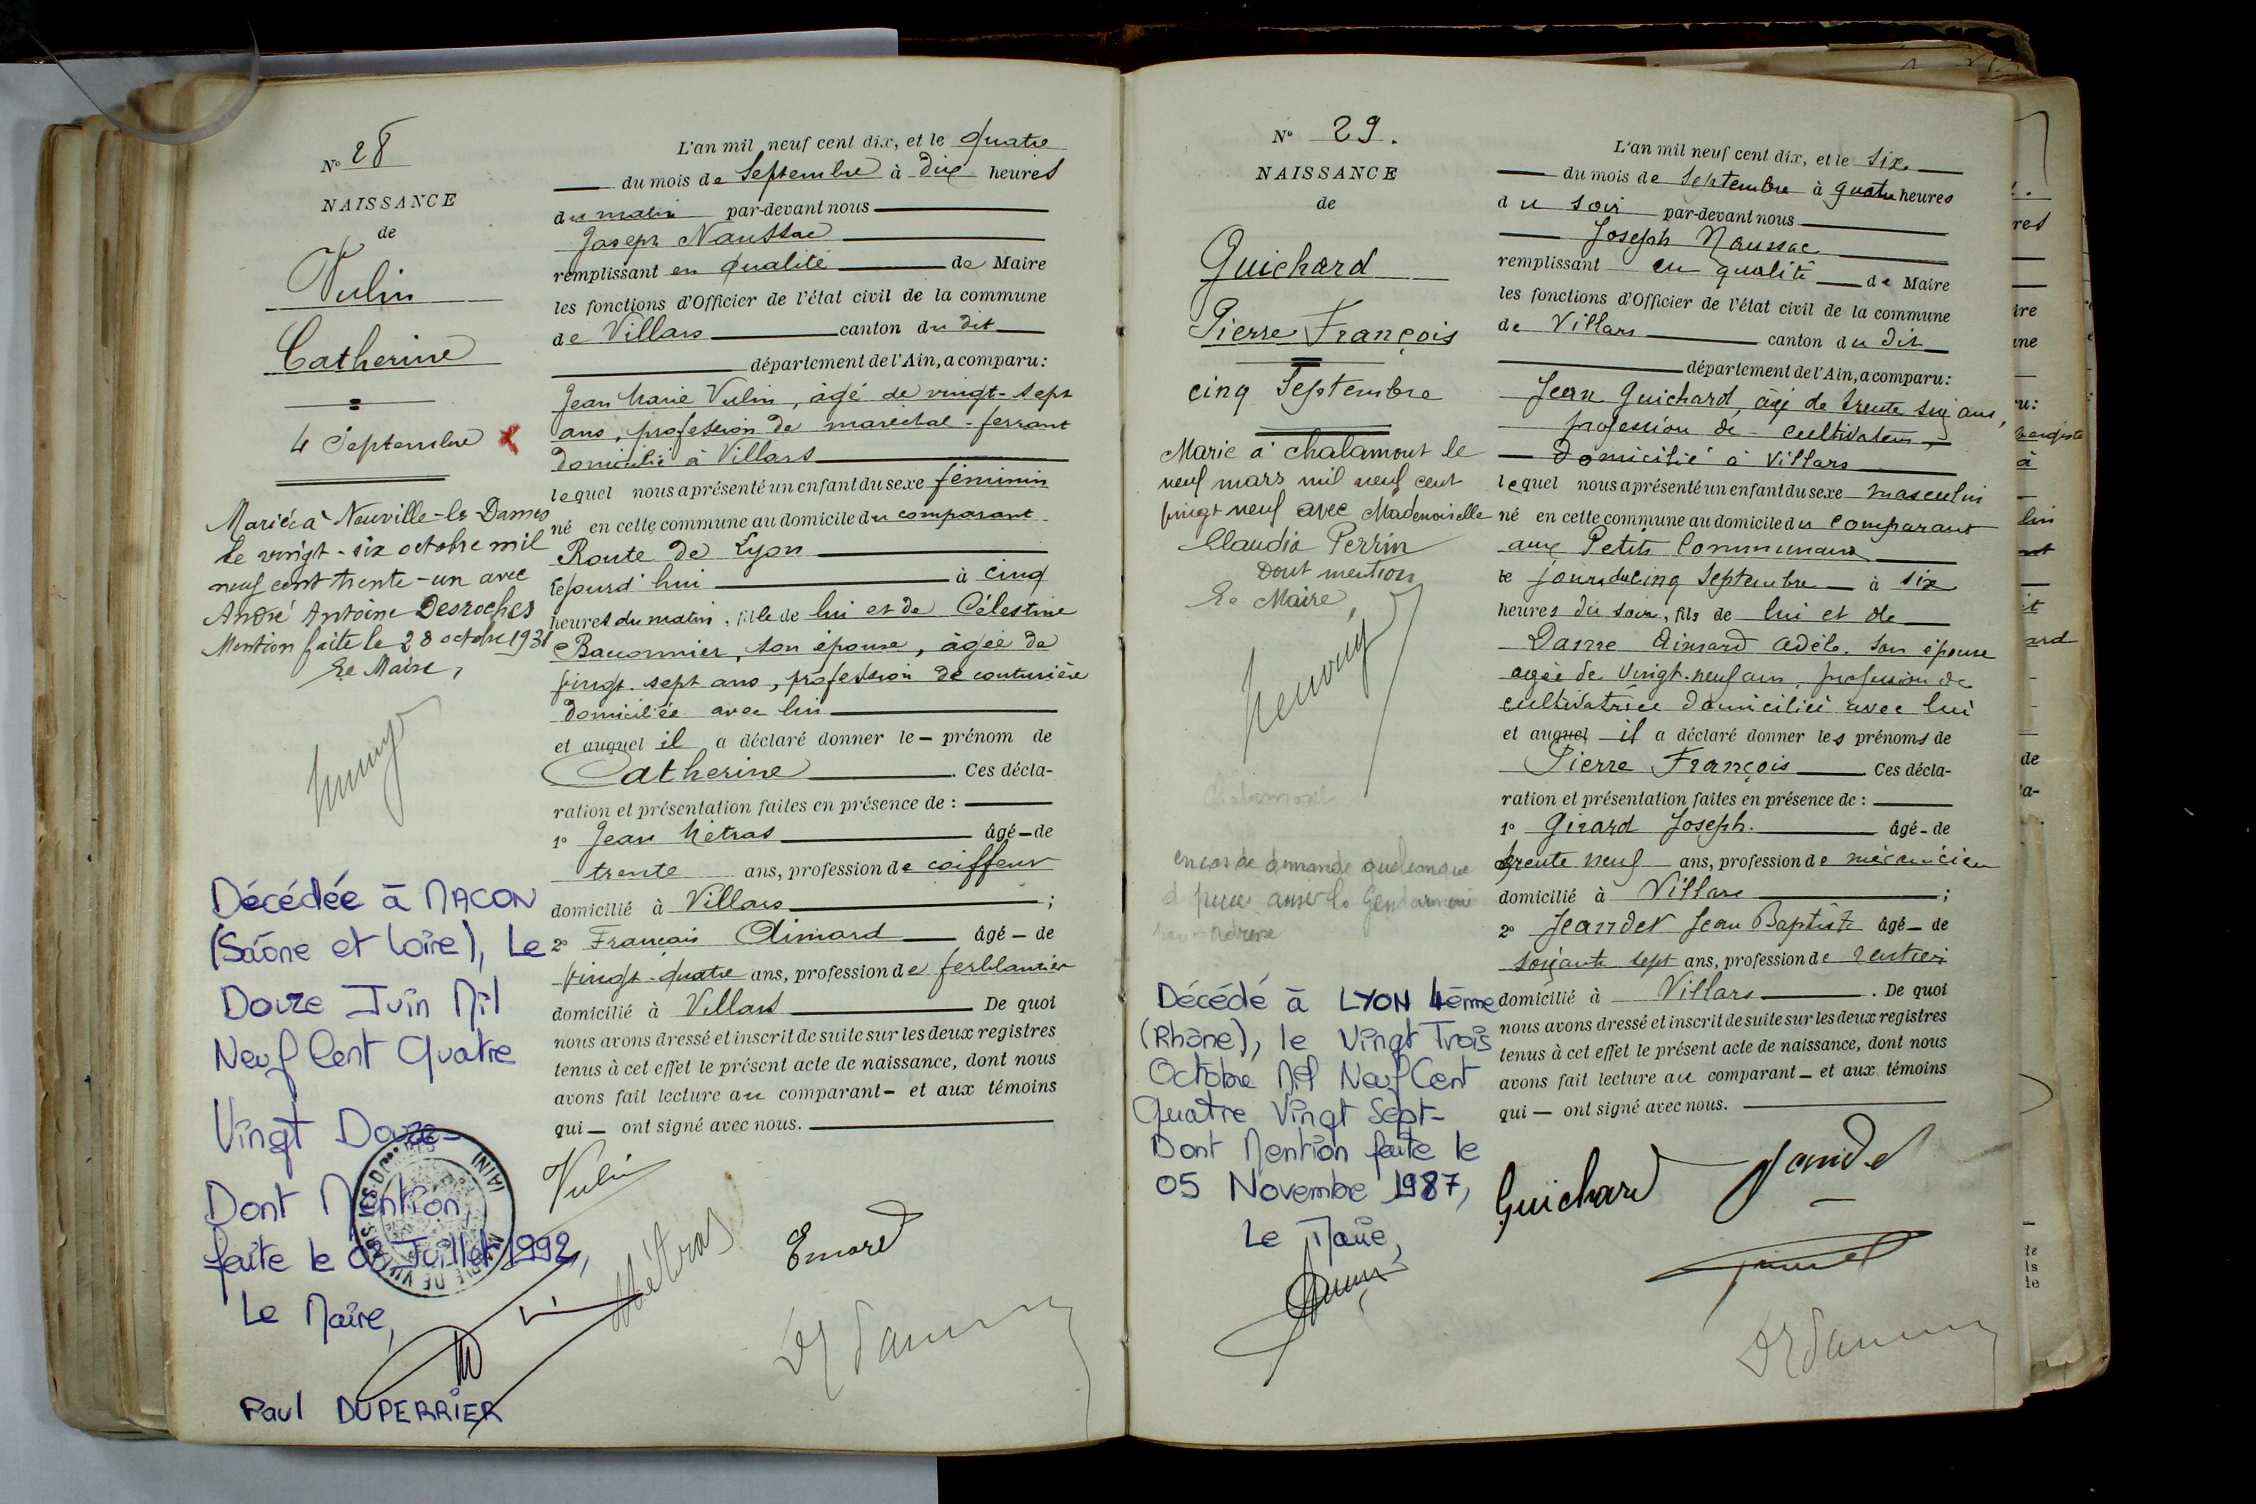 N° 28
NAISSANCE
de
Vulin
Catherine
4 Septembre
Mariée à Neuville-les Dames
le vingt-six octobre mil
neuf cent trente-un avec
André Antoine Desroches
Mention faite le 28 octobre 1931
Le Maire,
Décédée à MACON
(Saône et Loire), Le
Douze Juin Mil
Neuf Cent Quatre
Vingt Douze-
Dont Mention
faite le Juillet 1992,
Le Maire,
Paul DUPERRIER
L'an mil neuf cent dix, et le quatre
du mois de Septembre à dix heures
du matin par-devant nous
Joseph Naussac
remplissant en qualité de Maire
les fonctions d'Officier de l'état civil de la commune
de Villars canton du dit
département de l'Ain, a comparu:
Jean Marie Vulin, âgé de vingt-sept
ans, profession de maréchal-ferrant
domicilié à Villars
lequel nous a présenté un enfant du sexe féminin
né en cette commune au domicile du comparant
Route de Lyon
cejourd'hui à cinq
heures du matin, fille de lui et de Célestine
son épouse, âgée de
vingt-sept ans, profession de couturière
domiciliée avec lui
et auquel il a déclaré donner le - prénom de
Catherine. Ces décla-
ration et présentation faites en présence de :
1° Jean Métras âgé - de
trente ans, profession de coiffeur
domicilié à Villars ;
2° Français Aimard âgé - de
vingt-quatre ans, profession de ferblantier
domicilié à Villars De quoi
nous avons dressé et inscrit de suite sur les deux registres
tenus à cet effet le présent acte de naissance, dont nous
avons fait lecture au comparant - et aux témoins
qui - ont signé avec nous.
Vulin
Métras
Emard
N° 29.
NAISSANCE
de
Guichard
Pierre François
cinq Septembre
Marié à chalamont le
neuf mars mil neuf cent
vingt neuf avec Mademoiselle
Claudia Perrin
Dont mention
Le Maire,
Chalamont
en cas de demande quelconque
la Gendarmerie
adresse
Décédé à LYON 4ème
(Rhône), le Vingt Trois
Octobre Mil Neuf Cent
Quatre Vingt Sept-
Dont Mention faite le
05 Novembre 1987,
Le Maire,
L'an mil neuf cent dix, et le six
du mois de Septembre à quatre heures
du soir par-devant nous
Joseph Naussac
remplissant en qualité de Maire
les fonctions d'Officier de l'état civil de la commune
de Villars canton du dit
département de l'Ain, a comparu:
Jean Guichard, âgé de trente six ans,
profession de cultivateur,
domicilié à Villars
lequel nous a présenté un enfant du sexe masculin
né en cette commune au domicile du comparant
aux Petits Communaux
le jour du cinq Septembre à six
heures du soir, fils de lui et de
Dame Aimard Adèle. son épouse
agée de vingt-neuf ans, profession de
cultivatrice domiciliée avec lui
et auquel il a déclaré donner les prénoms de
Pierre François Ces décla-
ration et présentation faites en présence de :
1° Girard Joseph. âgé - de
trente neuf ans, profession de mécanicien
domicilié à Villars ;
2° Jeandet Jean Baptiste âgé - de
soixante sept ans, profession de rentier
domicilié à Villars. De quoi
nous avons dressé et inscrit de suite sur les deux registres
tenus à cet effet le présent acte de naissance, dont nous
avons fait lecture au comparant - et aux témoins
qui - ont signé avec nous.
Guichard
Jandet